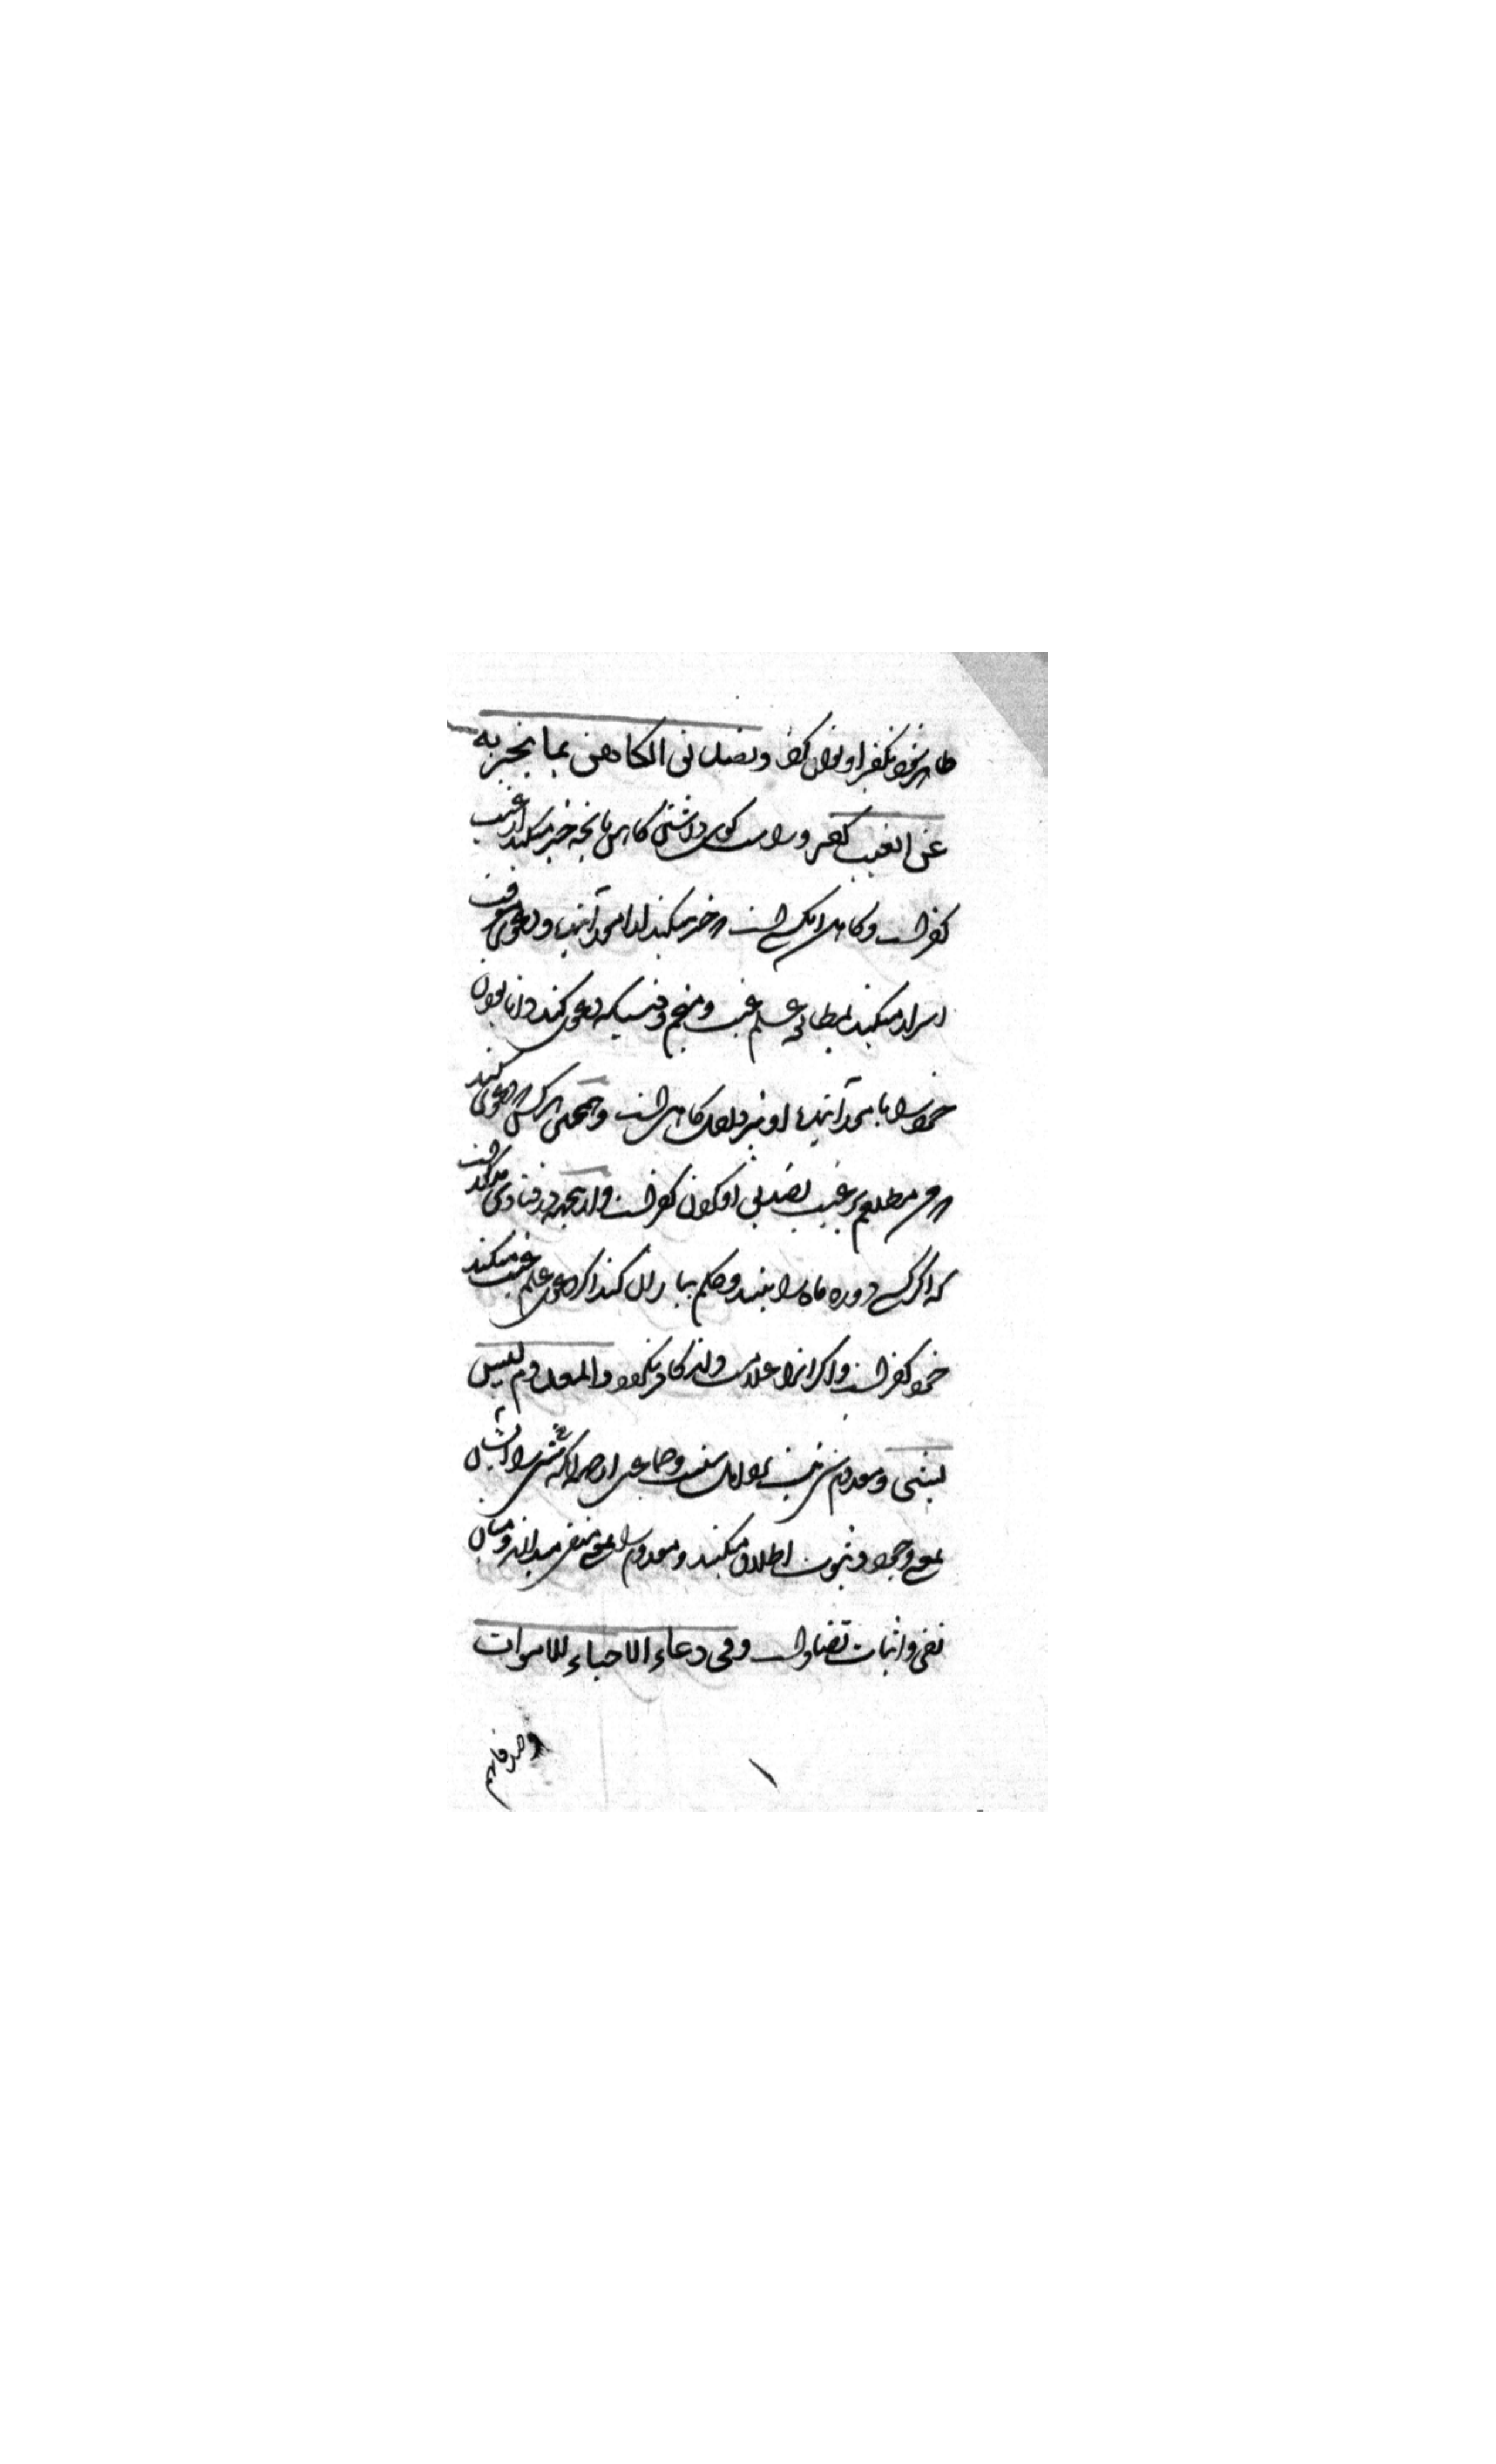 ظاهر نشود تکفیر او نتوان کرد وتصدیق الکاهن بما یخبر به
عن الغیب کفر و راست گوی داشتن کاهن بانچه خبر میکند از غیب
کفر است و کاهن انکسی است که خبر میکند از امور آینده و دعوی معرفت
اسرار میکند بمطالعه علم غیب و منجم وقتیکه دعوی کند دانا بودن
خود را بامور آینده او نیز داخل کاهن است وهمچنین هر کس که دعوی کند
که من مطلعم بر غیب تصدیق او کردن کفر است و از ینجهة در فتاوی مذکور است
که اگر کسی دوره ماه را بیند و حکم بباران کند اگر دعوی علم غیب میکند
خود کفر است و اگر انرا علامت داند کافر نگردد والمعدوم لیس
بشیء و معدوم شیء نیست نزد اهل سنت و جماعت از جهة انکه شیء را ایشان
بمعنی وجود و ثبوت اطلاق میکنند و معدوم را بمعنی منفی میدانند و میان
نفی و اثبات تضاد است وفی دعاء الاحیاء للاموات
وصدقاتهم